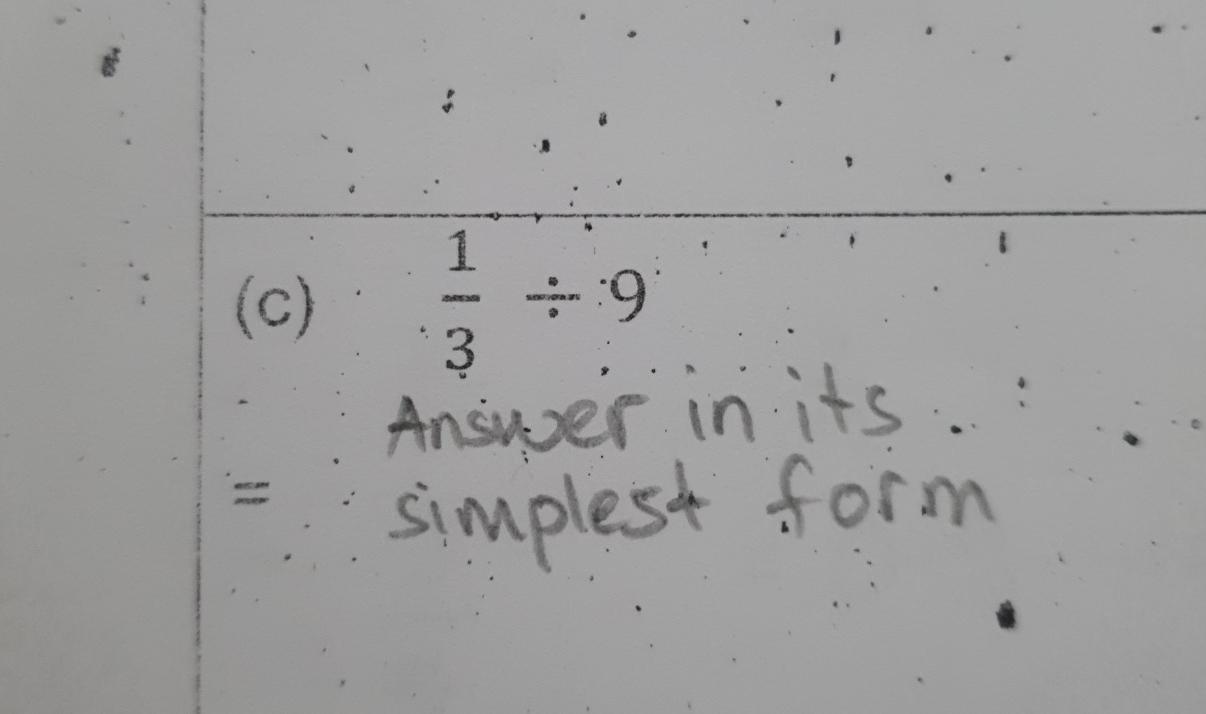 (c) 1/3 ÷ 9
Answer in its
= simplest form